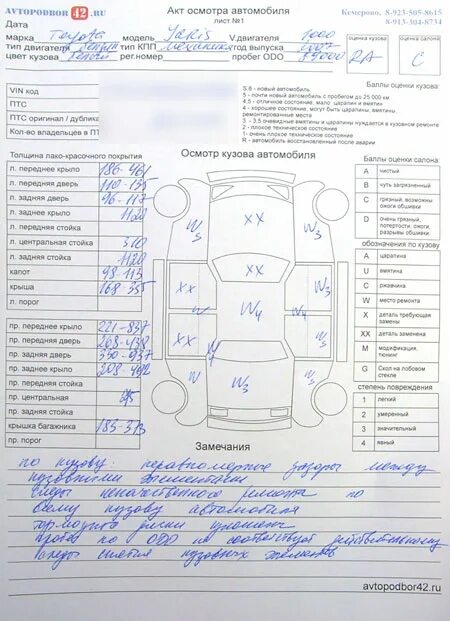 AVTOPODBOR 42 .RU
Акт осмотра автомобиля
лист №1
Кемерово, 8-923-505-8615
8-913-304-8734
Дата
марка Toyota модель Yaris V.двигателя 1000
тип двигателя бензин тип КПП механика год выпуска 2007
цвет кузова рег.номер пробег ODO
оценка кузова RA
оценка салона C
VIN код
ПТС
ПТС оригинал / дубликат
Кол-во владельцев в ПТС
Баллы оценки кузова
S,6 - новый автомобиль.
5 - почти новый автомобиль с пробегом до 25 000 км
4,5 - отличное состояние, мало царапин и вмятин
4 - хорошее состояние, могут быть царапины, вмятины, ремонтированные места
3 - 3,5 очевидные вмятины и царапины нуждается в кузовном ремонте
2 - плохое техническое состояние
1 - очень плохое техническое состояние
R - автомобиль восстановленный после аварии
Толщина лако-красочного покрытия
л. переднее крыло 186-461
л. передняя дверь 110-135
л. задняя дверь 96-117
л. заднее крыло 1120
л. передняя стойка
л. центральная стойка 310
л. задняя стойка 1120
капот 98-113
крыша 168-355
л. порог
пр. переднее крыло 221-837
пр. передняя дверь 268-438
пр. задняя дверь 330-937
пр. заднее крыло 208-492
пр. передняя стойка
пр. центральная
пр. задняя стойка
крышка багажника 185-373
пр. порог
Осмотр кузова автомобиля
W5
XX
W3
W5
XX
W3
XX
W
W4
W3
XX
W4
W4
W3
W5
W3
W3
Баллы оценки салона
A чистый
B чуть загрязненный
C грязный, возможно ожоги обшивки
D очень грязный, потертости, ожоги, разрывы обшивки
обозначения по кузову
A царапина
U вмятина
C ржавчина
W место ремонта
X деталь требующая замены
XX деталь заменена
M модификация, тюнинг
G Скол на лобовом стекле
степень повреждений
1 легкий
2 умеренный
3 значительный
4 явный
Замечания
по кузову: неравномерные зазоры между
кузовными элементами
следы некачественного ремонта по
всему кузову автомобиля
тормозные диски
пробег по ОДО не соответствует действительному
следы снятия кузовных элементов
avtopodbor42.ru